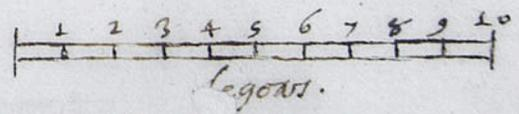 1 2 3 4 5 6 7 8 9 10
legoas.